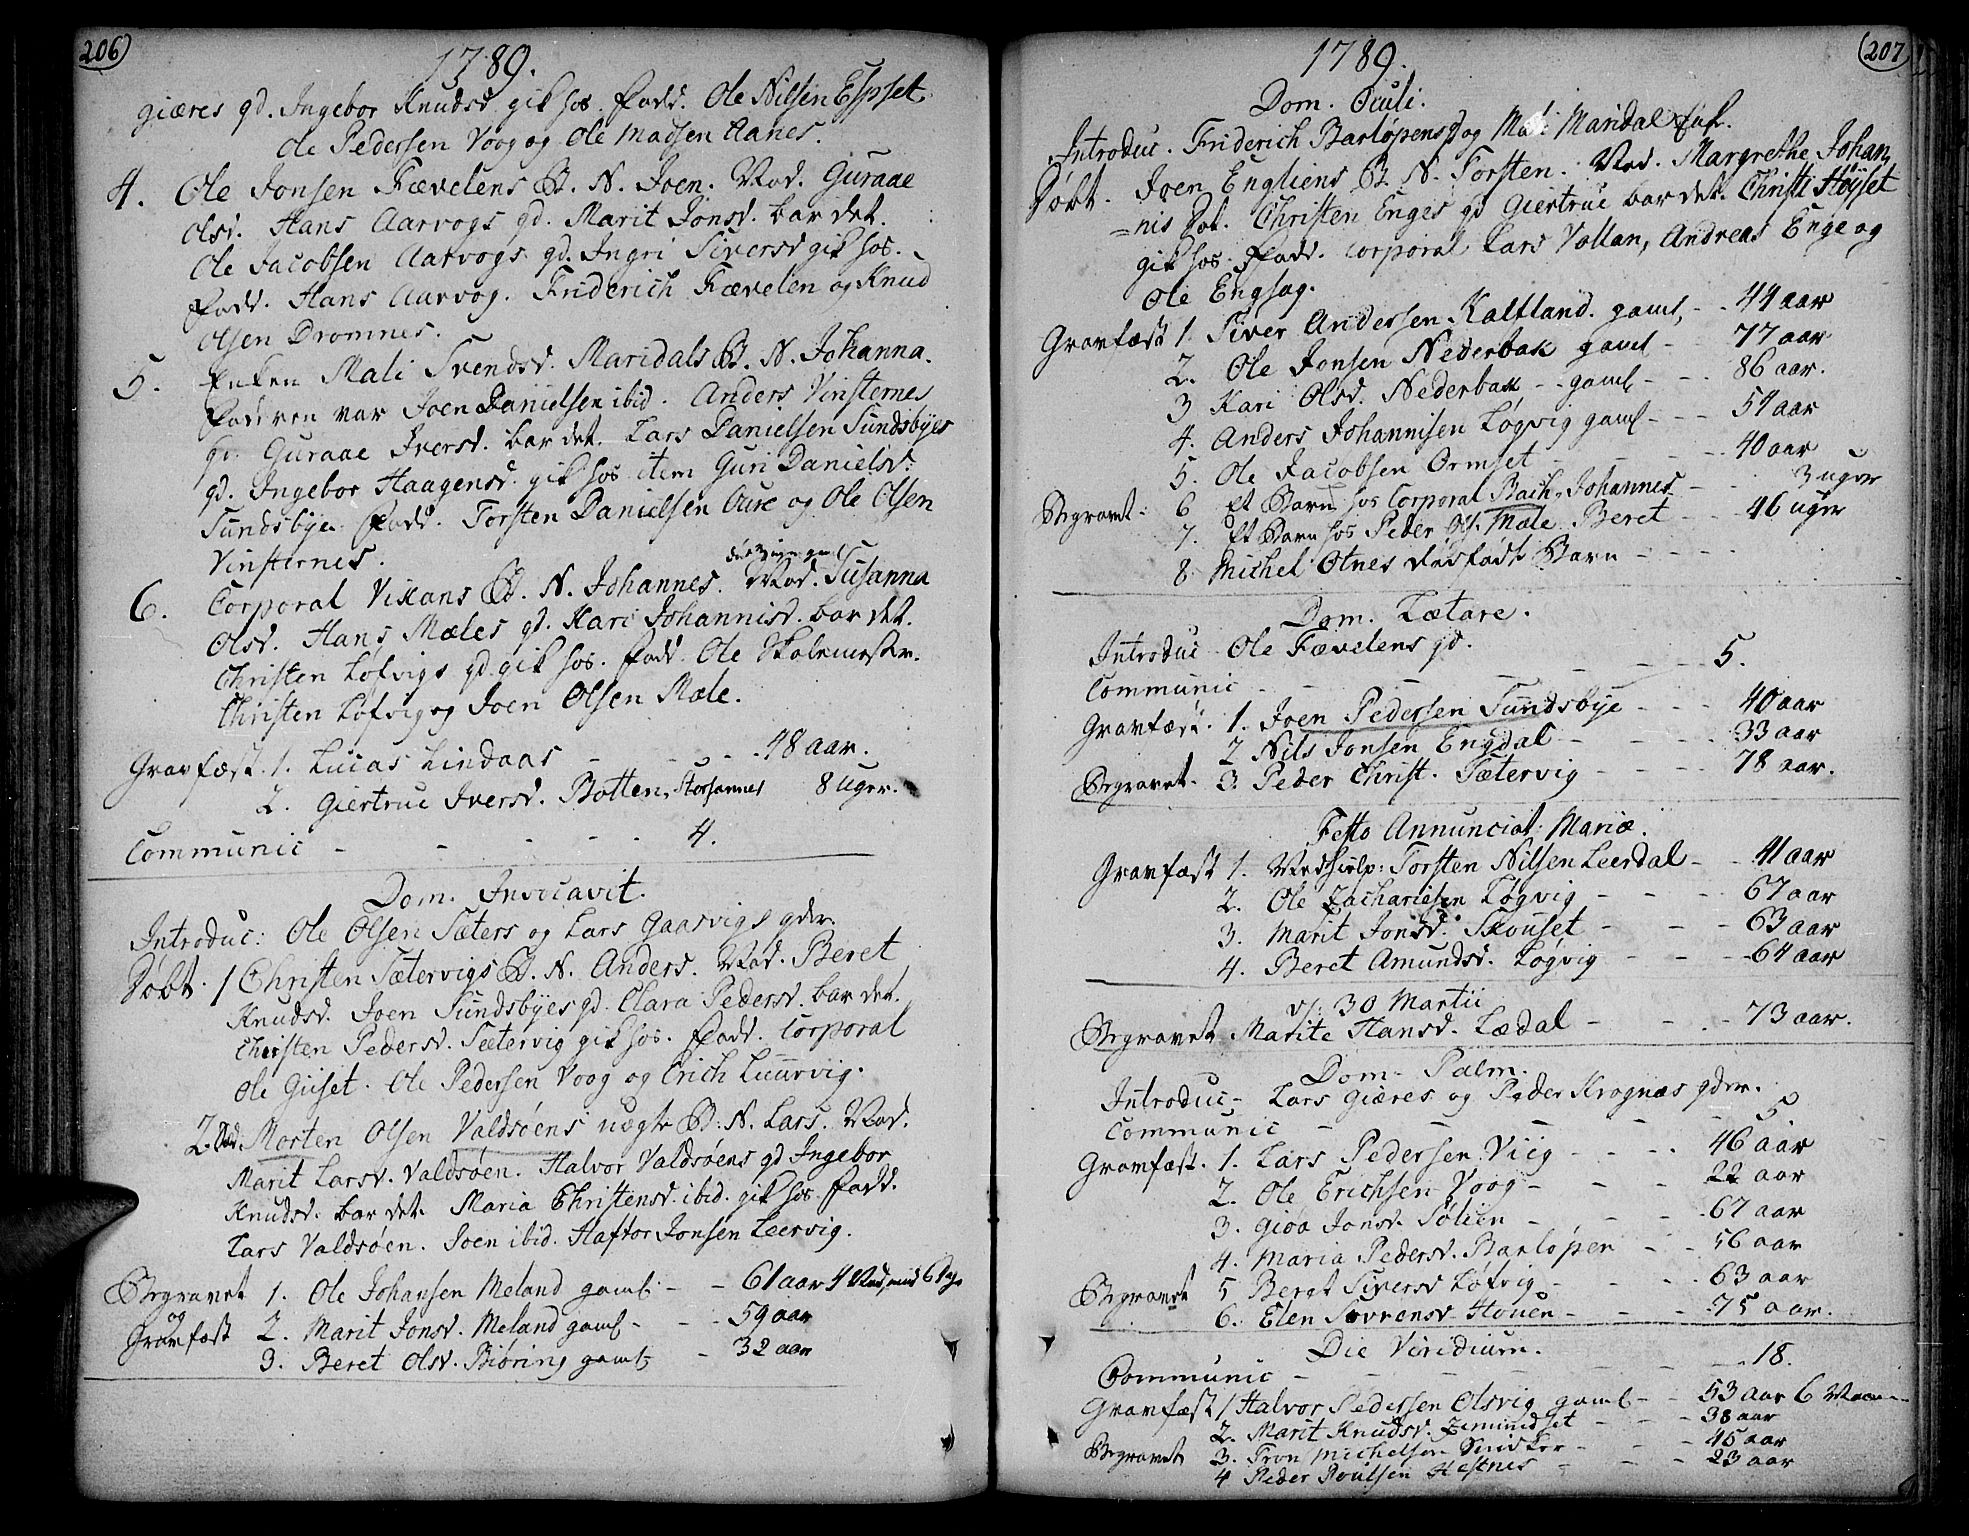 206
1789.
giæres qd. Ingebor Knudsd gik hos. Fadd. Ole Nilsen Espset,
Ole Pedersen Voog og Ole Madsen Aanes.
4. Ole Jonsen Fævelens B. N. Joen. Mod. Guraae
Olsd. Hans Aarvogs qd. Marit Jonsd. bar det.
Ole Jacobsen Aarvogs qd. Ingri Siversd gik hos.
Fadd. Hans Aarvog. Friderich Fævelen og Knud
Olsen Dromnes.
5. Enken Mali Svendsd. Maridals B. N. Johanna.
Faderen var Joen Danielsen ibid. Anders Vinsternes
qd. Guraae Iversd. bar det. Lars Danielsen Sundsbyes
qd. Ingebor Haagensd. gik hos item Guri Danielsd.
Sundsbye. Fadd. Torsten Danielsen Aure og Ole Olsen
Vinsternes.
6. Corporal Vikans B. N. Johannes. Mod. Susanna
Olsd. Hans Mæles qd. Kari Johannisd. bar det.
Christen Løfvigs qd gik hos. Fadd. Ole Skolemester.
Christen Løfvig og Joen Olsen Mæle.
Gravfæst. 1. Lucas Lindaas - - - 48 aar.
2. Giertrue Iversd. Botten, 8 uger.
Communic - - - - 4.
Dom. Invocavit.
Introduc: Ole Olsen Sæters og Lars Gaasvigs qder.
Døbt. 1 Christen Sætervigs B. N. Anders. Mod. Beret
Knudsd. Joen Sundsbyes qd. Clara Pedersd. bar det.
Christen Pedersd. Sætervig gik hos. Fadd. Corporal
Ole Giiset. Ole Pedersen Voog og Erich Luurvig.
2. Morten Olsen Valdsøens uægte B. N. Lars. Mod.
Marit Larsd. Valdsøen. Halvor Valdsøens qd Ingebor
Knudsd. bar det. Maria Christensd. ibid. gik hos. Fadd.
Lars Valdsøen. Joen ibid. Haftor Jonsen Leervig.
Begravet 1. Ole Johansen Meland gaml - - 61 aar 4
og
Gravfæst 2. Marit Jonsd. Meland gaml - - - 59 aar
3. Beret Olsd. Biøring gaml - 32 aar
207
1789.
Dom. Oculi.
Introduc. Friderich Barløpens qd og Mali Maridal
Døbt. Joen Engliens B. N. Torsten. Mod. Margrethe Johan
=nis Dot. Christen Enges qd Giertrue bar det. Christi Høyset
gik hos. Fadd. Corporal Lars Vollan, Andreas Enge og
Ole Enghag.
Gravfæst 1. Siver Andersen Kalfland. gaml, - - 44 aar
2. Ole Jonsen Nederbak gaml - - 77 aar
3 Kari Olsd. Nederbak - - gaml - - - 86 aar.
4. Anders Johannisen Løgvig gaml - - - 54 aar
5. Ole Jacobsen Ormset - - - - 40 aar
Begravet: 6 Et Barn hos Corporal Bach, Johannes - - 3 uger
7. Et Barn hos Peder Ols. Mæle Beret - - 46 uger
8. Michel Otnes dødfødt Barn - - - -
Dom. Lætare.
Introduc Ole Fævelens qd.
Communic - - - - - - 5.
Gravfæst. 1. Joen Pedersen Sundsbye - - - 40 aar
2 Nils Jonsen Engdal - - - - 33 aar
Begravet. 3. Peder Christ. Sætervig - - - - 78 aar.
Festo Annunciat: Mariæ.
Gravfæst 1. Medhielp: Torsten Nilsen Leerdal - - 41 aar
2. Ole Zachariesen Løgvig - - - - 67 aar
3. Marit Jonsd. Skouset - - - 63 aar
4. Beret Amundsd. Løgvig - - - - 64 aar
d. 30 Martii
Begravet Marite Hansd. Lædal - - - - 73 aar.
Dom. Palm.
Introduc - Lars Giæres og Peder Krognæs qder.
Communic - - - - - 5
Gravfæst. 1. Lars Pedersen Viig - - - - 46 aar
2. Ole Erichsen Voog - - - 22 aar
3. Gioa Jonsd. Solien - - - - 67 aar
4. Maria Pedersd. Barløpen - - - 56 aar
Begravet 5 Beret Siversd Løfvig - - - - 63 aar
6. Elen Sørensd Houen - - - - 75 aar.
Die Viridium.
Communic - - - - - - 18.
Gravfæst 1 Halvor Pedersen Olsvig gaml - - 53 aar 6
2. Marit Knudsd. - - - 38 aar
Begravet 3. Tron Michelsen - - - 45 aar
4 Peder Poulsen Hestnes - - - 23 aar